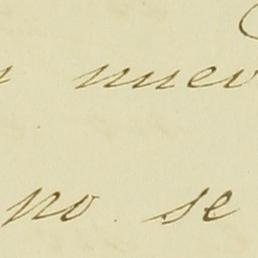 nuev
no se